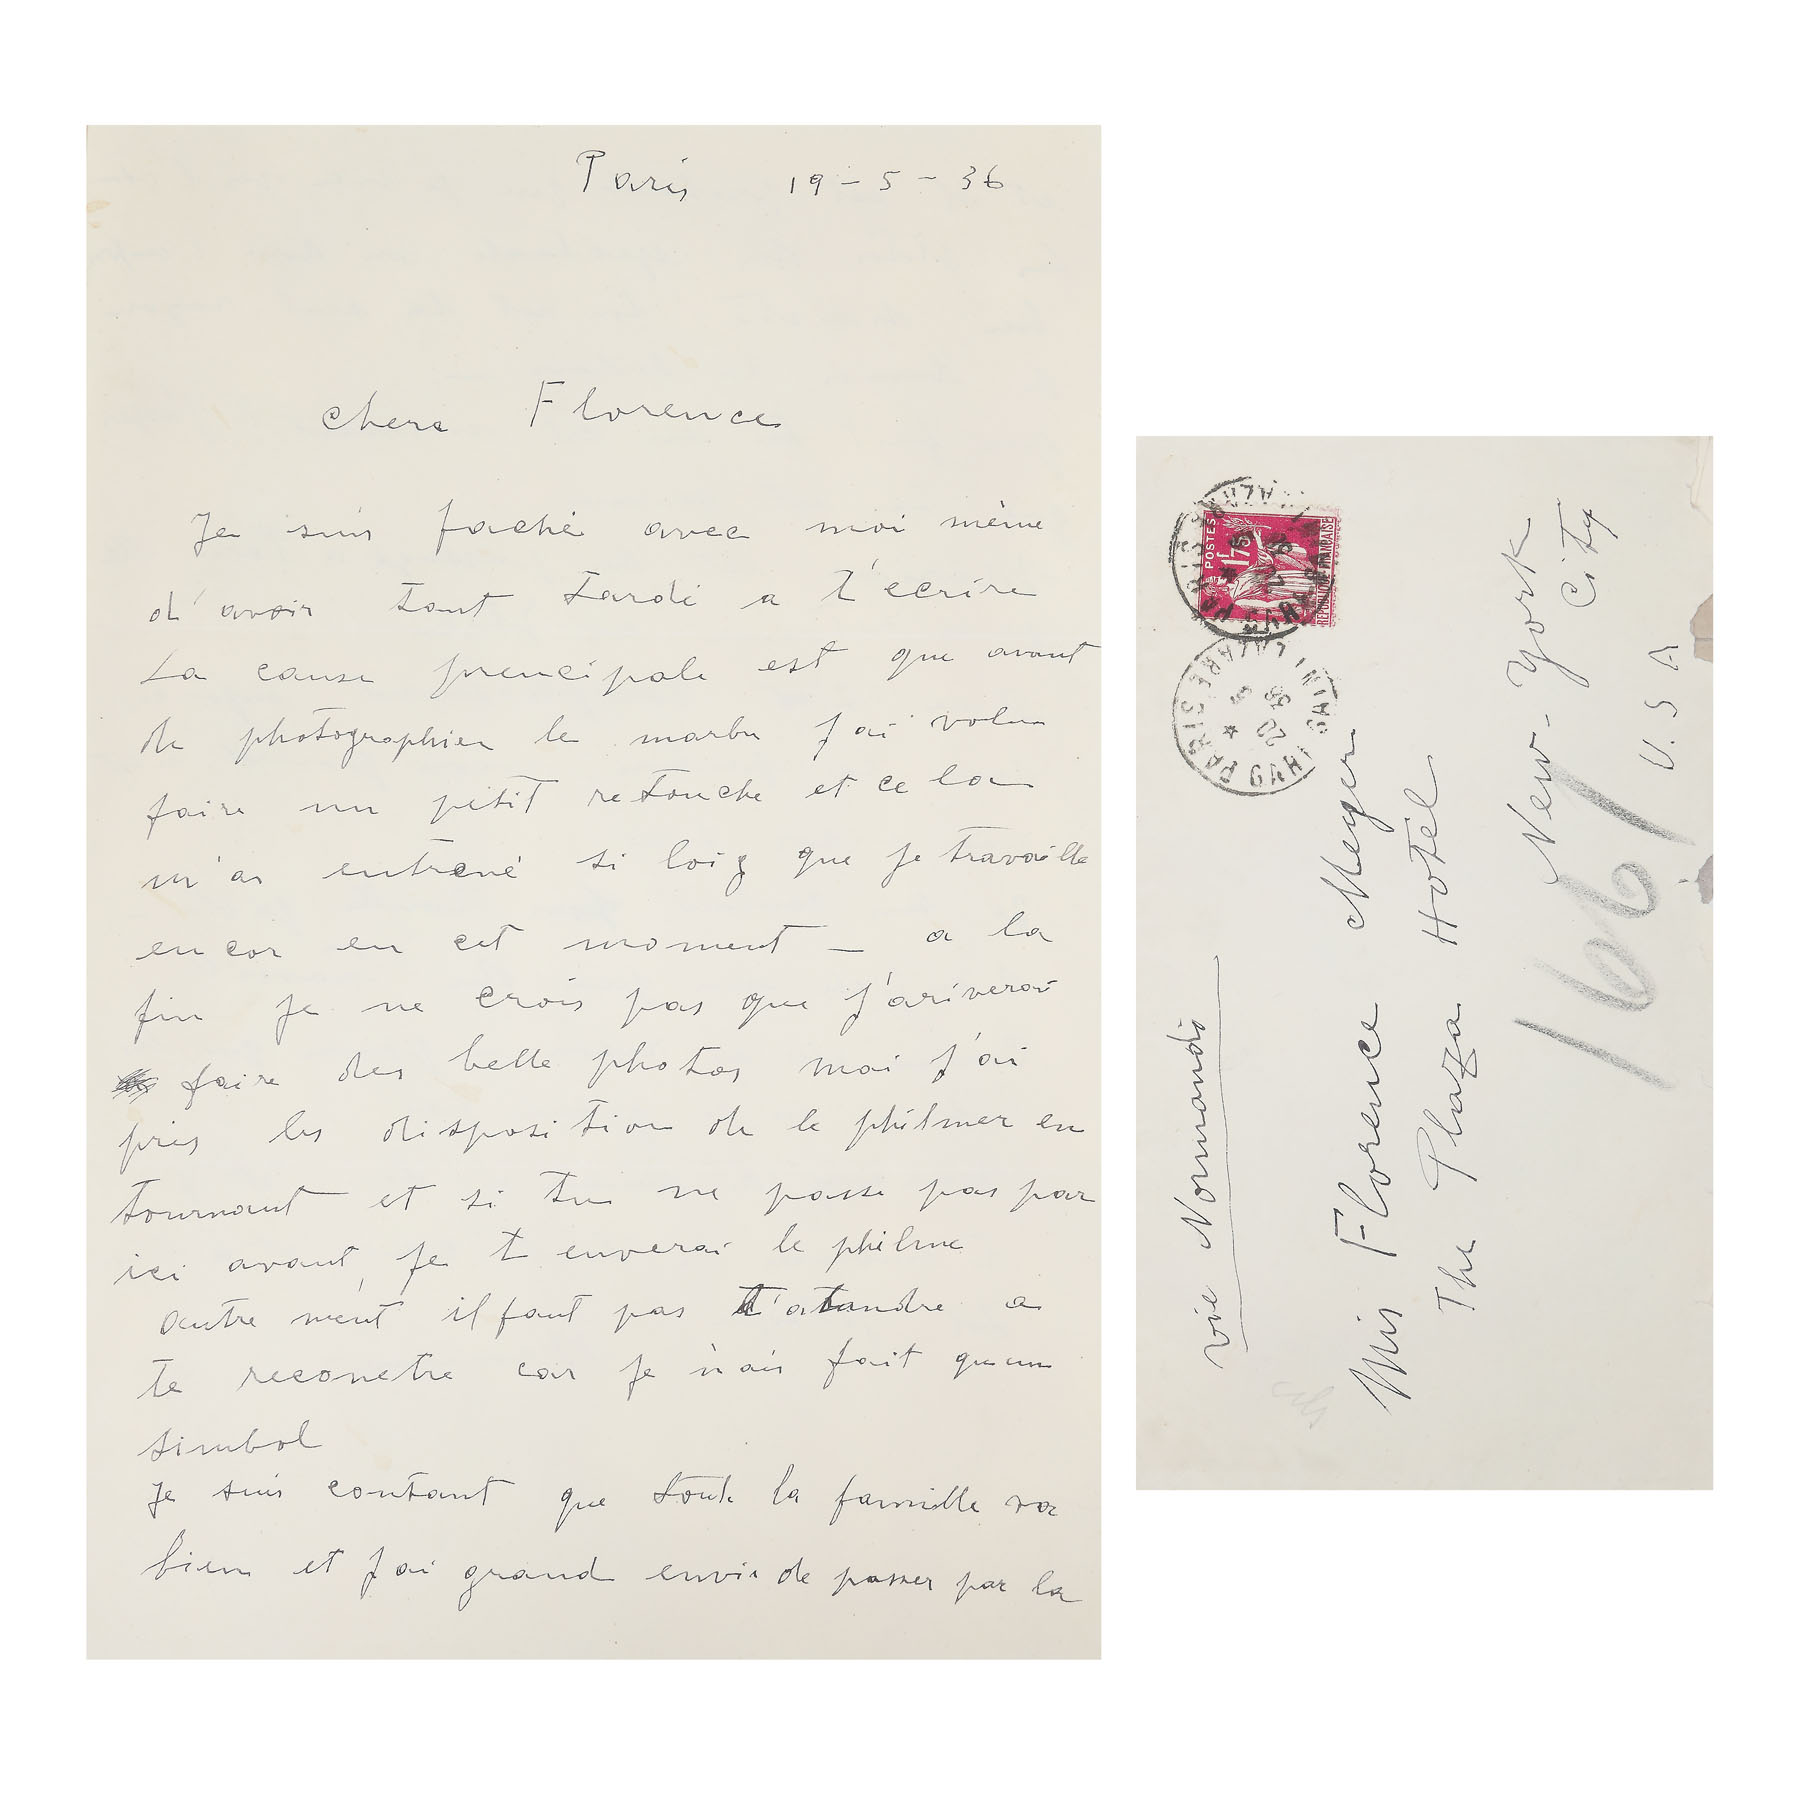 Paris 19-5-36
chere Florence
Je suis faché avec moi même
d'avoir tant tardé a t'ecrire
La cause prencipale est que avant
de photographier le marbre j'ai volu
faire un petit retouche et ce la
m'a entrené si loig que je travaille
encor en cet moment — a la
fin je ne crois pas que j'ariverai
faire des belle photos moi j'ai
pris les disposition de le philmer en
tournant et si tu ne passe pas par
ici avant, je t enverai le philme
autre ment il faut pas t'atandre a
te reconetre car je n'ais fait qu un
simbol
Je suis contant que toute la famille va
bien et j'ai grand envie de passer par la
vie Normandie
Mis Florence Meyer
The Plaza Hotel
New-York
City
U.S A
166
POSTES
1f75
REPUBLIQUE FRANÇAISE
PARIS GARE SAINT LAZARE
20 5 36